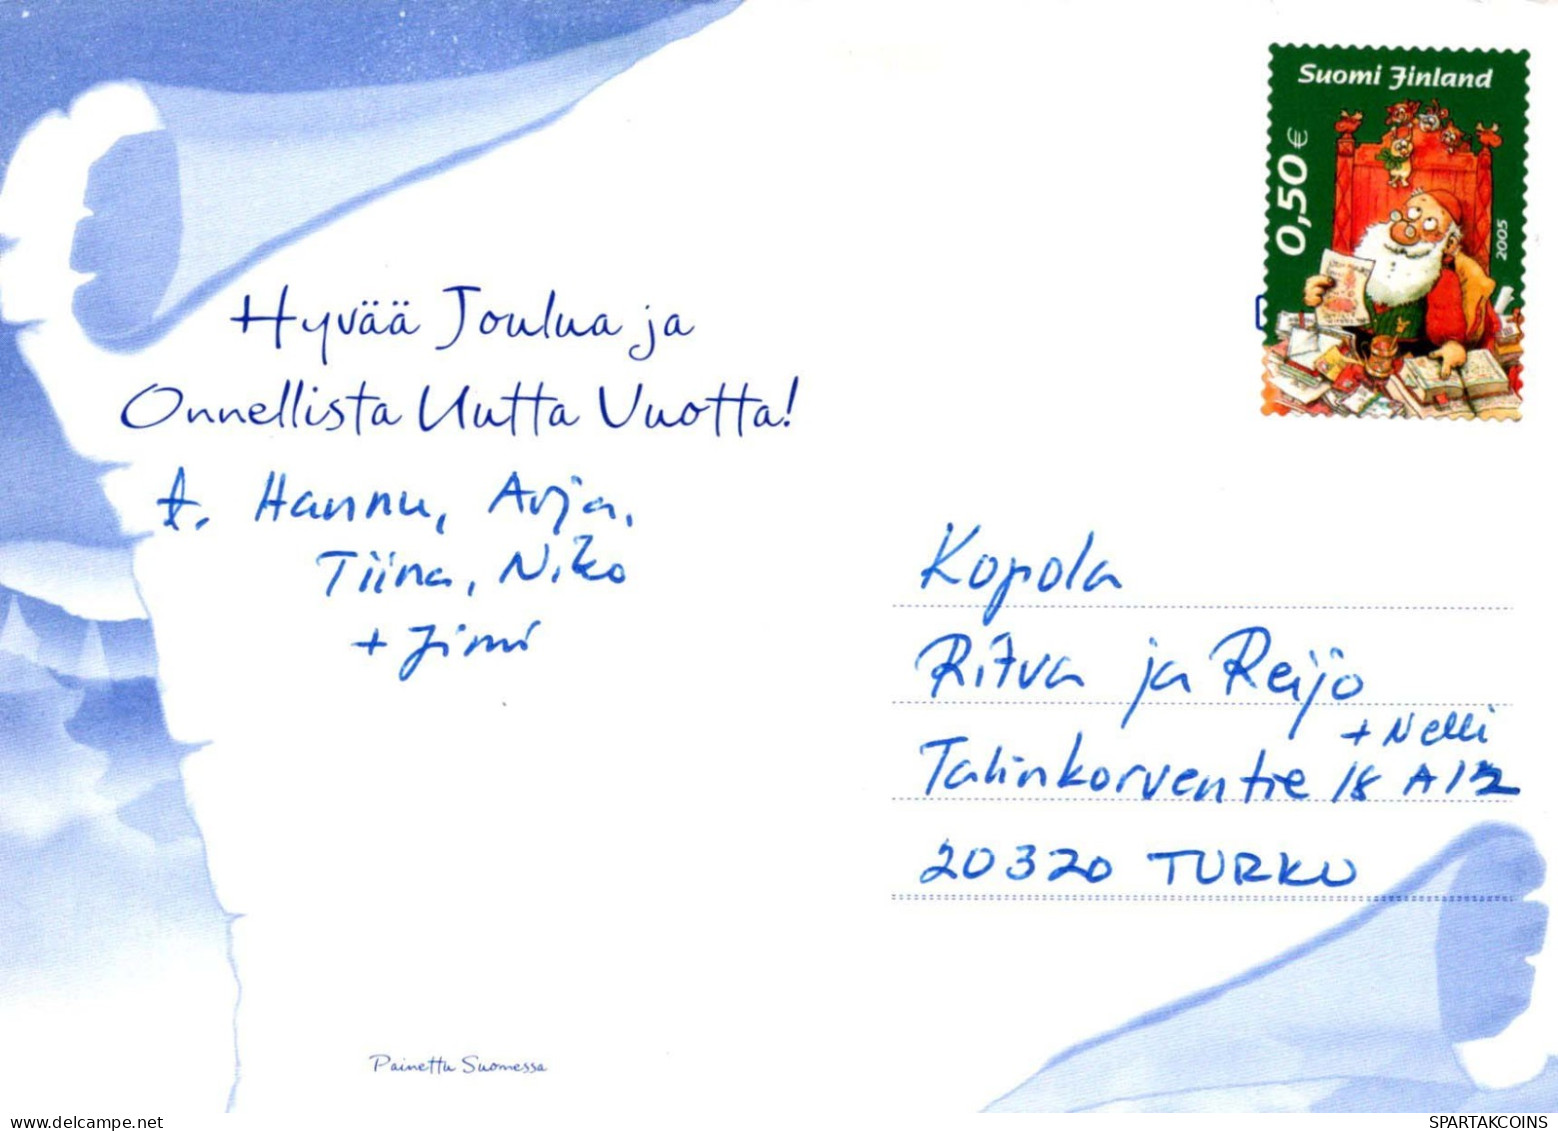 Suomi Finland
0,50 €
2005
Hyvää Joulua ja
Onnellista Uutta Vuotta!
t. Hannu, Arja,
Tiina, Niko
+ Jimi
Kopola
Ritva ja Reijo
+ Nelli
Talinkorventie 18 A 12
20320 TURKU
Painettu Suomessa
delcampe.net
SPARTAKCOINS